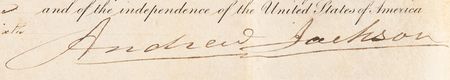 and of the independence of the United States of America
Andrew Jackson